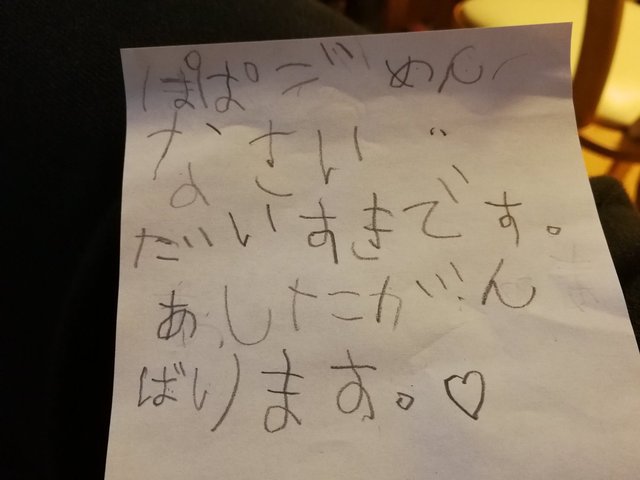 ぱぱごめん
なさい
だいすきです。
あしたがん
ばります。♡